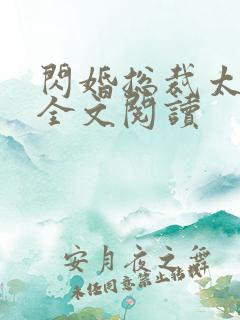 閃婚總裁太
全文閱讀
安月夜之舞
未任同意禁止转载